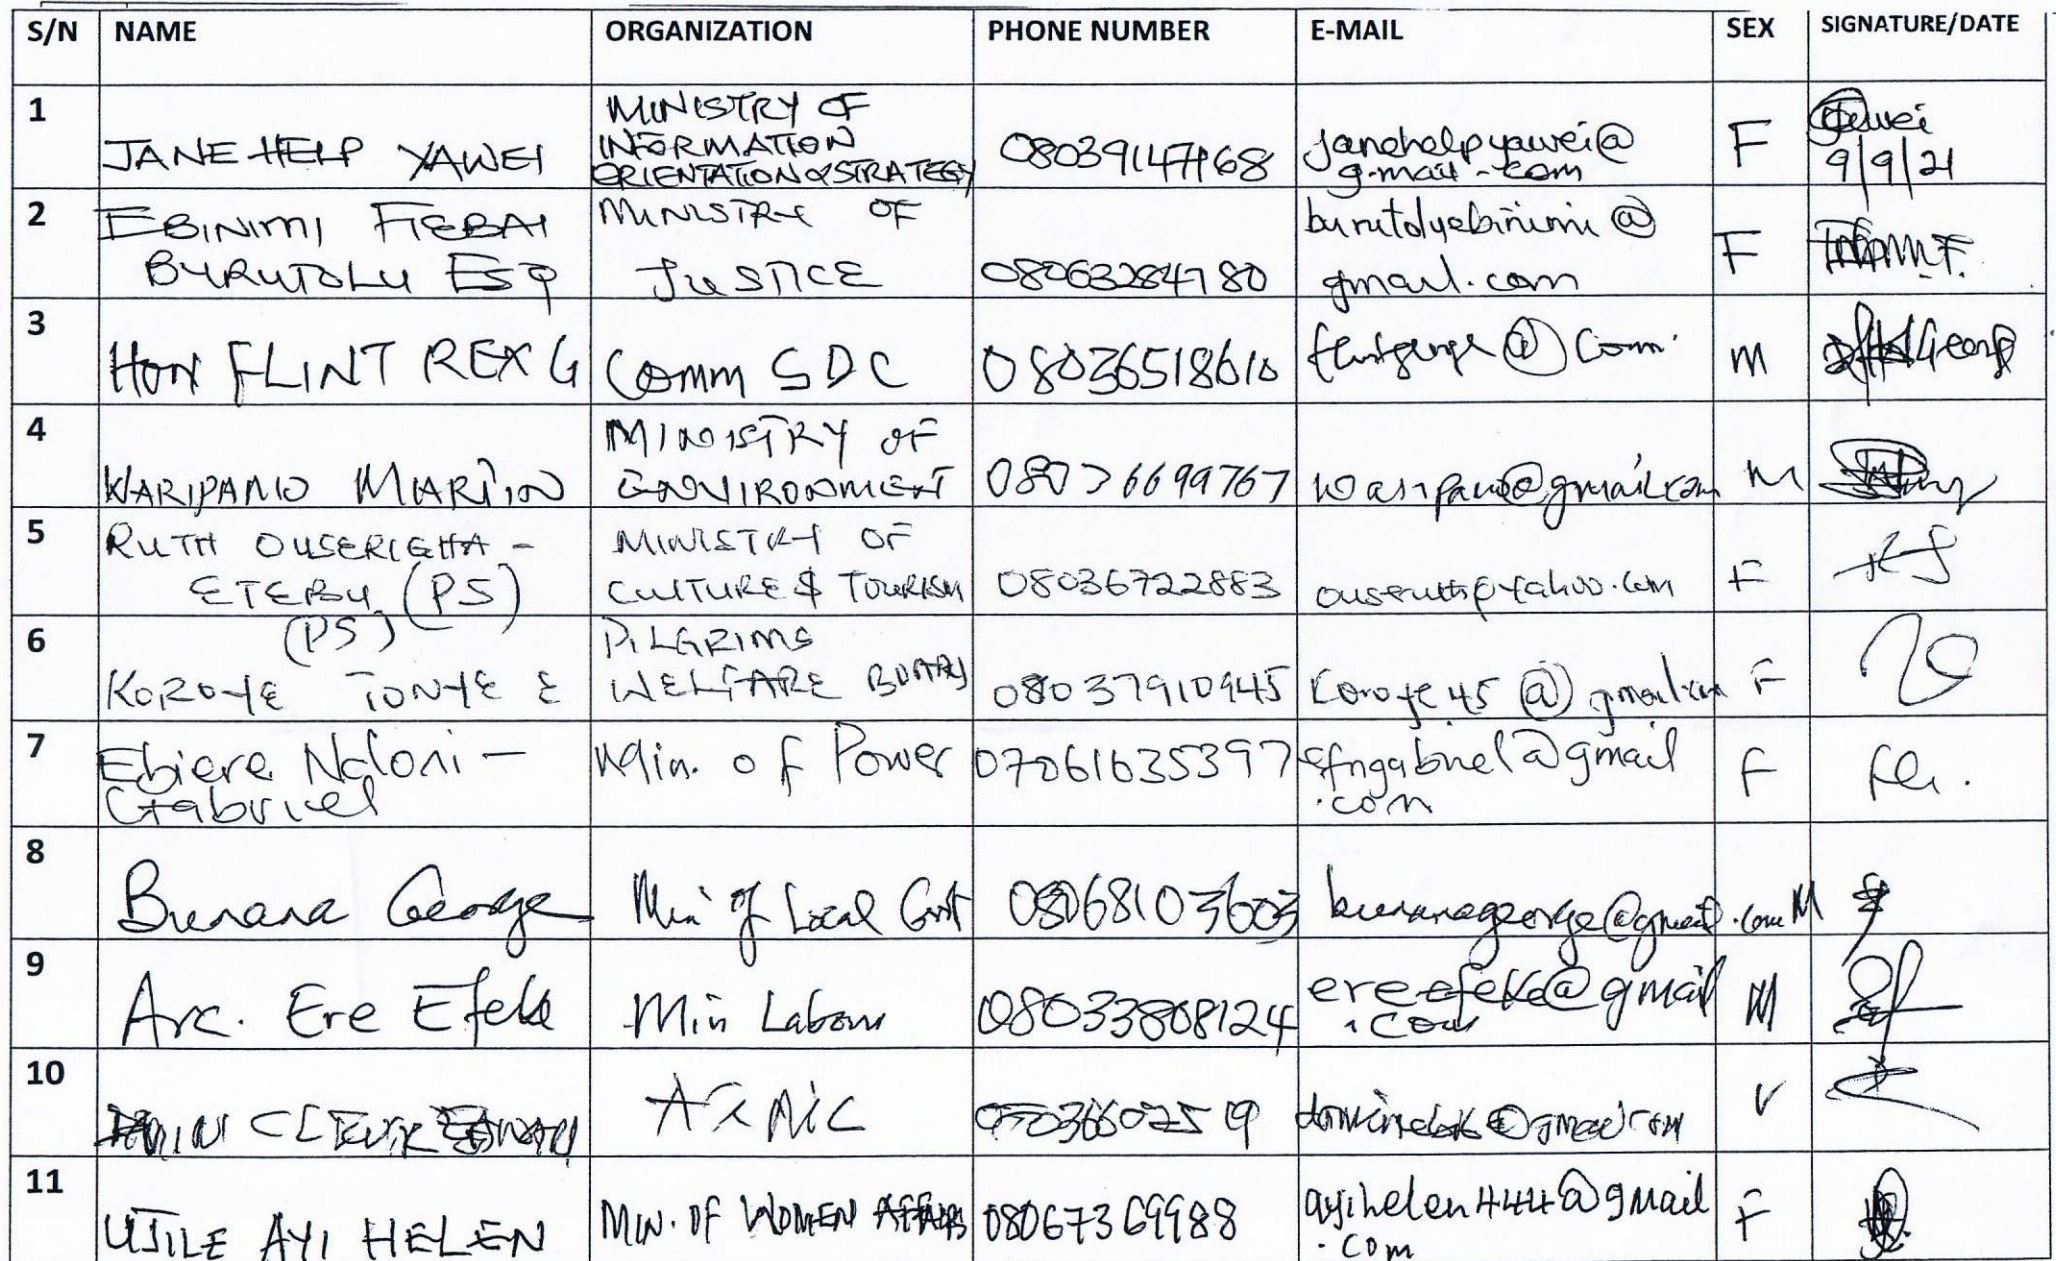 S/N NAME ORGANIZATION PHONE NUMBER E-MAIL SEX SIGNATURE/DATE
1 JANE HELP YAWEI MINISTRY OF INFORMATION ORIENTATION & STRATEGY 08039147168 janehelpyawei@ F
g.mail.com 9/9/21
2 EBINIMI FIEBAI MINISTRY OF burutolyebinimi@
BURUTOLU ESQ JUSTICE 08063284780 gmail.com F
3 HON FLINT REX G Comm SDC 08036518610 @ Com. M
4 WARIPAMO MARTIN MINISTRY OF
ENVIRONMENT 08036699767 @gmail.com M
5 RUTH OUSERIGHA - MINISTRY OF
ETEBU (PS) CULTURE & TOURISM 08036722883 F
6 (PS) PILGRIMS
KOROYE TONYE E WELFARE BOARD 08037910945 Koroye45@gmail.com F
7 Ebiere Ndoni - Min. of Power 07061635397 efngabriel@gmail F
Gabriel .com
8 Bunana George Min of Local Govt 08068103603 bunanageorge@gmail.com M
9 Arc. Ere Efeke Min Labour 08033808124 ereefeke@gmail M
.com
10
11 UJILE AYI HELEN MIN. OF WOMEN AFFAIRS 08067369988 ayihelen444@gmail F
.com